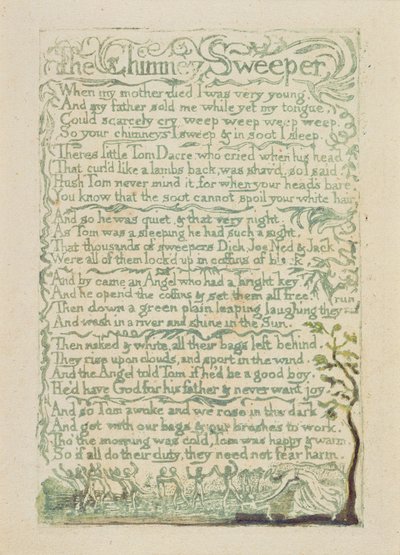 The Chimney Sweeper
When my mother died I was very young
And my father sold me while yet my tongue,
Could scarcely cry weep weep weep weep.
So your chimneys I sweep & in soot I sleep.
Theres little Tom Dacre, who cried when his head
That curl'd like a lambs back, was shav'd, so I said.
Hush Tom never mind it, for when your heads bare,
You know that the soot cannot spoil your white hair
And so he was quiet, & that very night.
As Tom was a sleeping he had such a sight,
That thousands of sweepers Dick, Joe, Ned & Jack
Were all of them lock'd up in coffins of black
And by came an Angel who had a bright key
And he open'd the coffins & set them all free.
Then down a green plain leaping laughing they run
And wash in a river and shine in the Sun.
Then naked & white, all their bags left behind.
They rise upon clouds, and sport in the wind.
And the Angel told Tom, if he'd be a good boy,
He'd have God for his father & never want joy.
And so Tom awoke and we rose in the dark
And got with our bags & our brushes to work.
Tho' the morning was cold, Tom was happy & warm.
So if all do their duty, they need not fear harm.